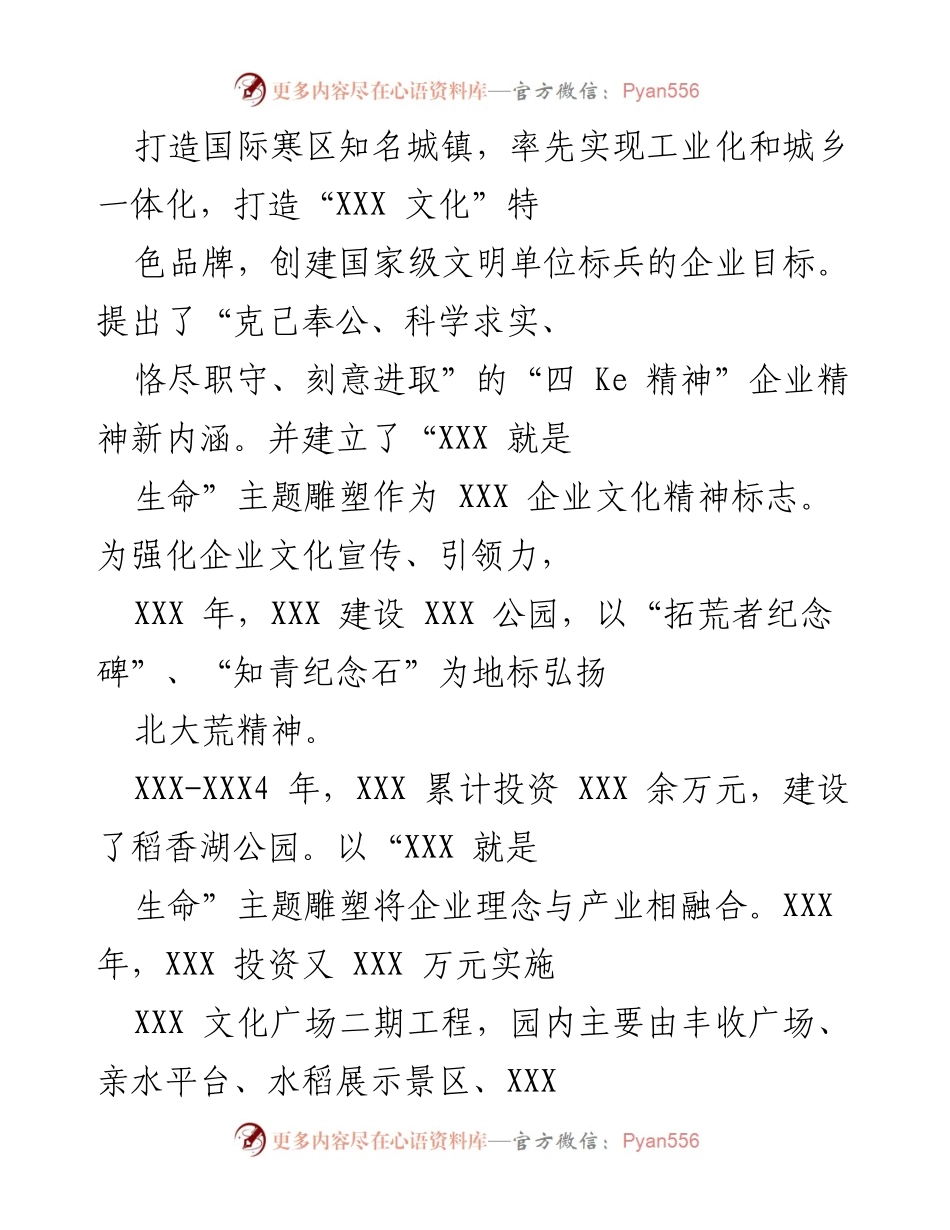 更多内容尽在心语资料库—官方微信：Pyan556
打造国际寒区知名城镇，率先实现工业化和城乡
一体化，打造“XXX 文化”特
色品牌，创建国家级文明单位标兵的企业目标。
提出了“克己奉公、科学求实、
恪尽职守、刻意进取”的“四 Ke 精神”企业精
神新内涵。并建立了“XXX 就是
生命”主题雕塑作为 XXX 企业文化精神标志。
为强化企业文化宣传、引领力，
XXX 年，XXX 建设 XXX 公园，以“拓荒者纪念
碑”、“知青纪念石”为地标弘扬
北大荒精神。
XXX-XXX4 年，XXX 累计投资 XXX 余万元，建设
了稻香湖公园。以“XXX 就是
生命”主题雕塑将企业理念与产业相融合。XXX
年，XXX 投资又 XXX 万元实施
XXX 文化广场二期工程，园内主要由丰收广场、
亲水平台、水稻展示景区、XXX
更多内容尽在心语资料库—官方微信：Pyan556